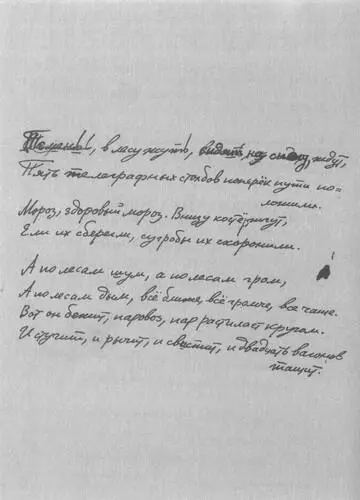 Темень!, в лесу жуть!, сидят, ждут,
Пять телеграфных столбов поперёк пути по-
ложили.
Мороз, здоровый мороз. Внизу костёр жгут,
Ели их сберегли, сугробы их схоронили.
А по лесам шум, а по лесам гром,
А по лесам дым, всё ближе, всё громче, все чаще.
Вот он бежит, паровоз, пар растилает кругом.
И стучит, и рычит, и свистит, и двадцать вагонов
тащит.